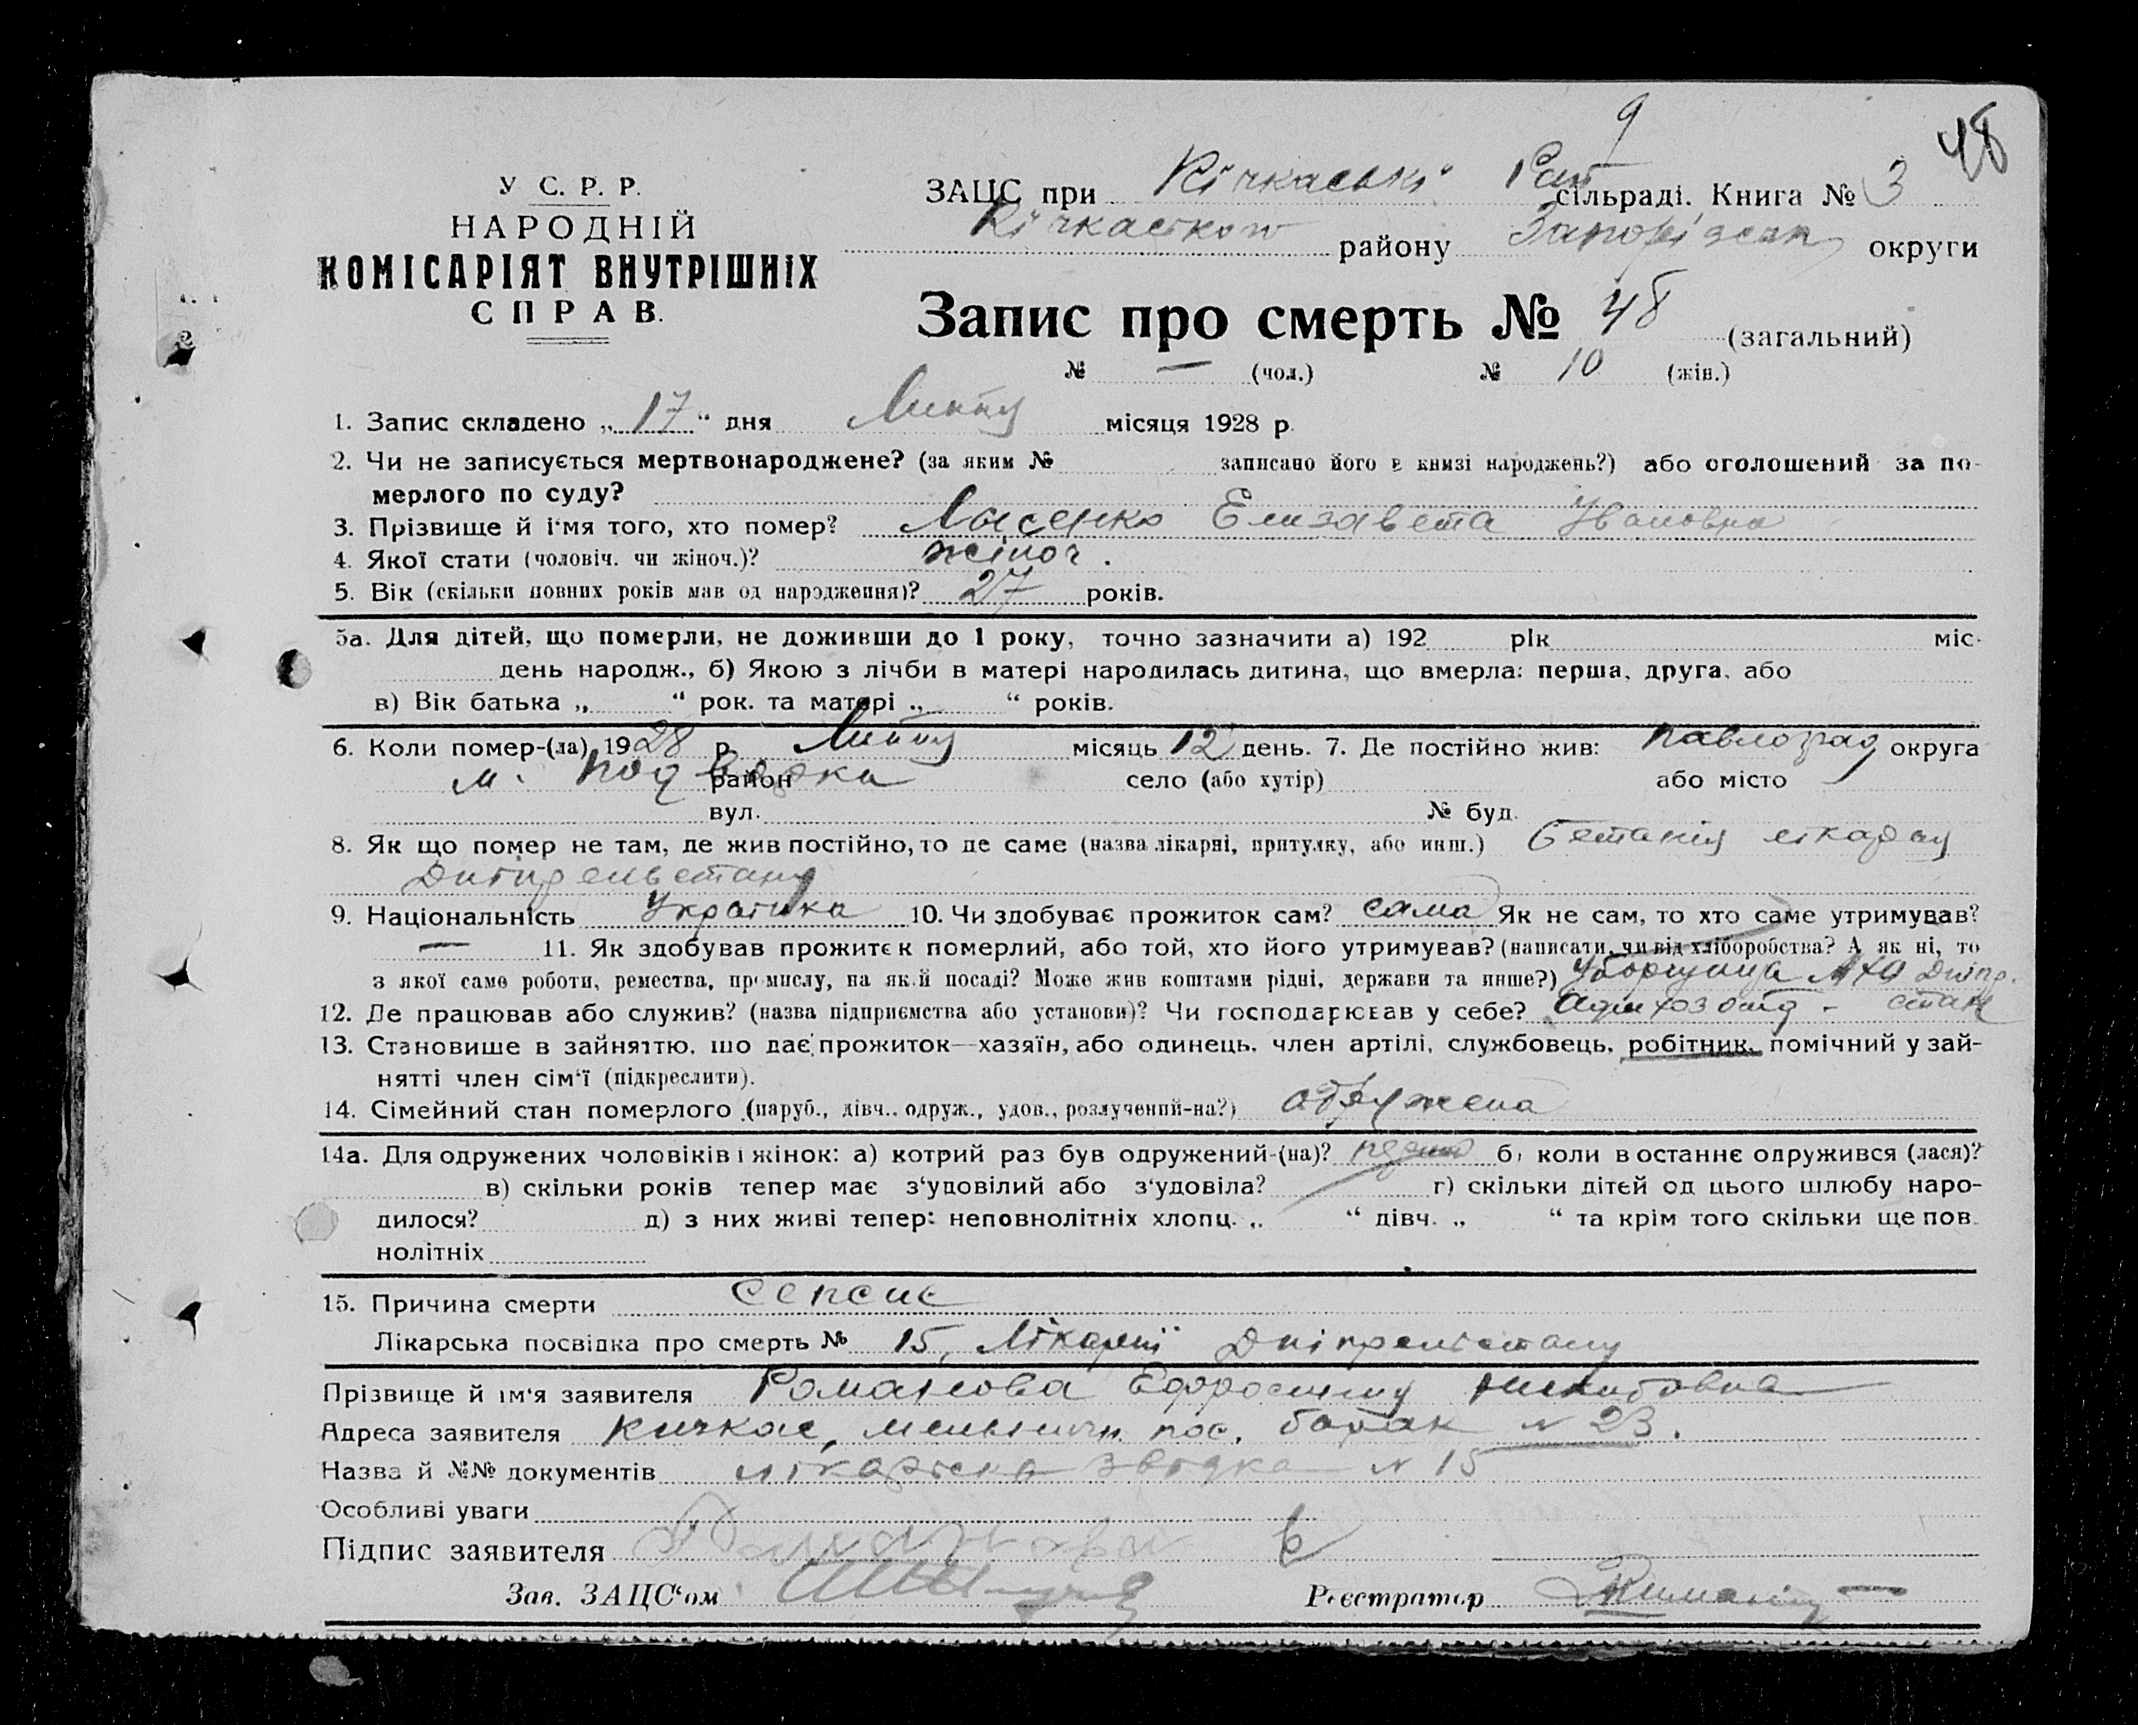 9
48
У С. Р. Р.
НАРОДНІЙ
КОМІСАРІЯТ ВНУТРІШНІХ
СПРАВ.
ЗАЦС при Кічкаські Рай сільраді. Книга № 3
району Запоріжск округи
Запис про смерть № 48 (загальний)
№ — (чол.) № 10 (жін.)
1. Запис складено „17“ дня Липня місяця 1928 р.
2. Чи не записується мертвонароджене? (за яким № записано його в книзі народжень?) або оголошений за по-
мерлого по суду?
3. Прізвище й ім'я того, хто помер? Лысенко Елизавета Ивановна
4. Якої стати (чоловіч. чи жіноч.)? жіноч.
5. Вік (скільки повних років мав од народження)? 27 років.
5а. Для дітей, що померли, не доживши до 1 року, точно зазначити а) 192 рік міс.
день народж., б) Якою з лічби в матері народилась дитина, що вмерла: перша, друга, або
в) Вік батька „ “ рок. та матері „ “ років.
6. Коли помер-(ла) 1928 р. Липня місяць 12 день. 7. Де постійно жив: Павлоград округа
м. район село (або хутір) або місто
вул. № буд.
8. Як що помер не там, де жив постійно, то де саме (назва лікарні, притулку, або инш.) лікарня
Дніпрельстану
9. Національність Українка 10. Чи здобуває прожиток сам? сама Як не сам, то хто саме утримував?
— 11. Як здобував прожиток померлий, або той, хто його утримував? (написати, чи від хліборобства? А як ні, то
з якої саме роботи, ремества, промислу, на якій посаді? Може жив коштами рідні, держави та инше?) Уборщица Дніпр.
12. Де працював або служив? (назва підприємства або установи)? Чи господарював у себе? Адмхозотд - стан
13. Становище в зайняттю, що дає прожиток—хазяїн, або одинець, член артілі, службовець, робітник, помічний у зай-
нятті член сім'ї (підкреслити).
14. Сімейний стан померлого (паруб., дівч., одруж., удов., розлучений-на?) одружена
14а. Для одружених чоловіків і жінок: а) котрий раз був одружений-(на)? б) коли в останнє одружився (лася)?
в) скільки років тепер має з'удовілий або з'удовіла? г) скільки дітей од цього шлюбу наро-
дилося? д) з них живі тепер: неповнолітніх хлопц. „ “ дівч. „ “ та крім того скільки ще пов-
нолітніх
15. Причина смерти сепсис
Лікарська посвідка про смерть № 15, Лікарні Дніпрельстану
Прізвище й ім'я заявителя Романова
Адреса заявителя Кичкас, пос. барак № 23.
Назва й №№ документів лікарська звідка № 15
Особливі уваги
Підпис заявителя
Зав. ЗАЦС'ом Реєстратор